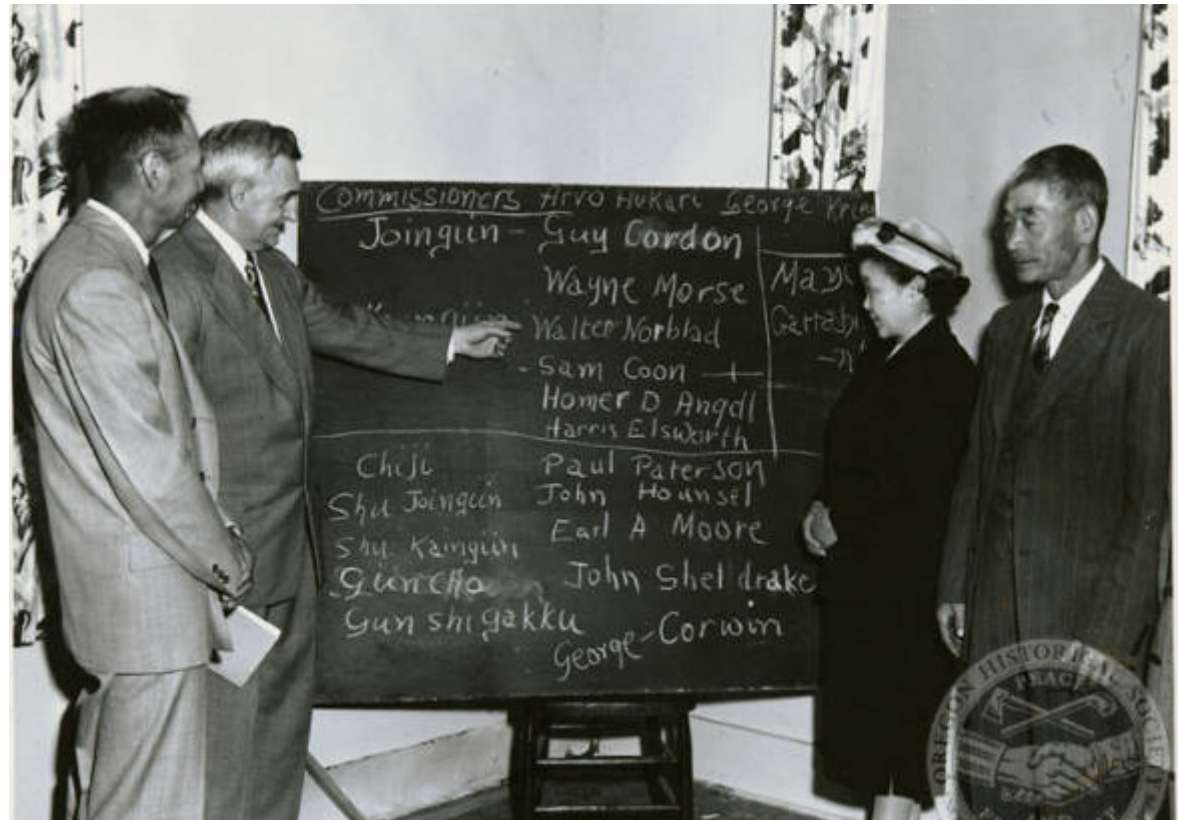 Commissioners Arvo Hukari George
Joingiin - Guy Cordon
Wayne Morse
Walter Norblad
- Sam Coon
Homer D Angdl
Harris Elsworth
Gartab
Chiji Paul Paterson
Shu Joingiin John Hounsel
Shu Kaingiin Earl A Moore
Guncho John Sheldrake
Gunshigakku George-Corwin
OREGON HISTORICAL SOCIETY
PEACE